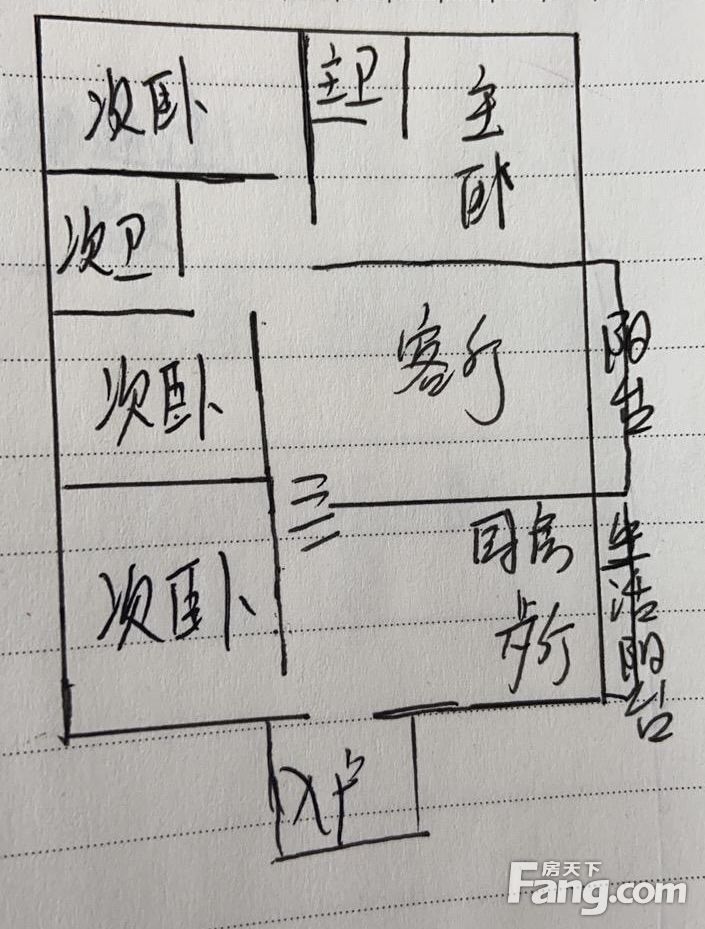 次卧
主卫
主卧
次卫
客厅
阳台
次卧
厨房
生活阳台
次卧
歺厅
入户
房天下
Fang.com